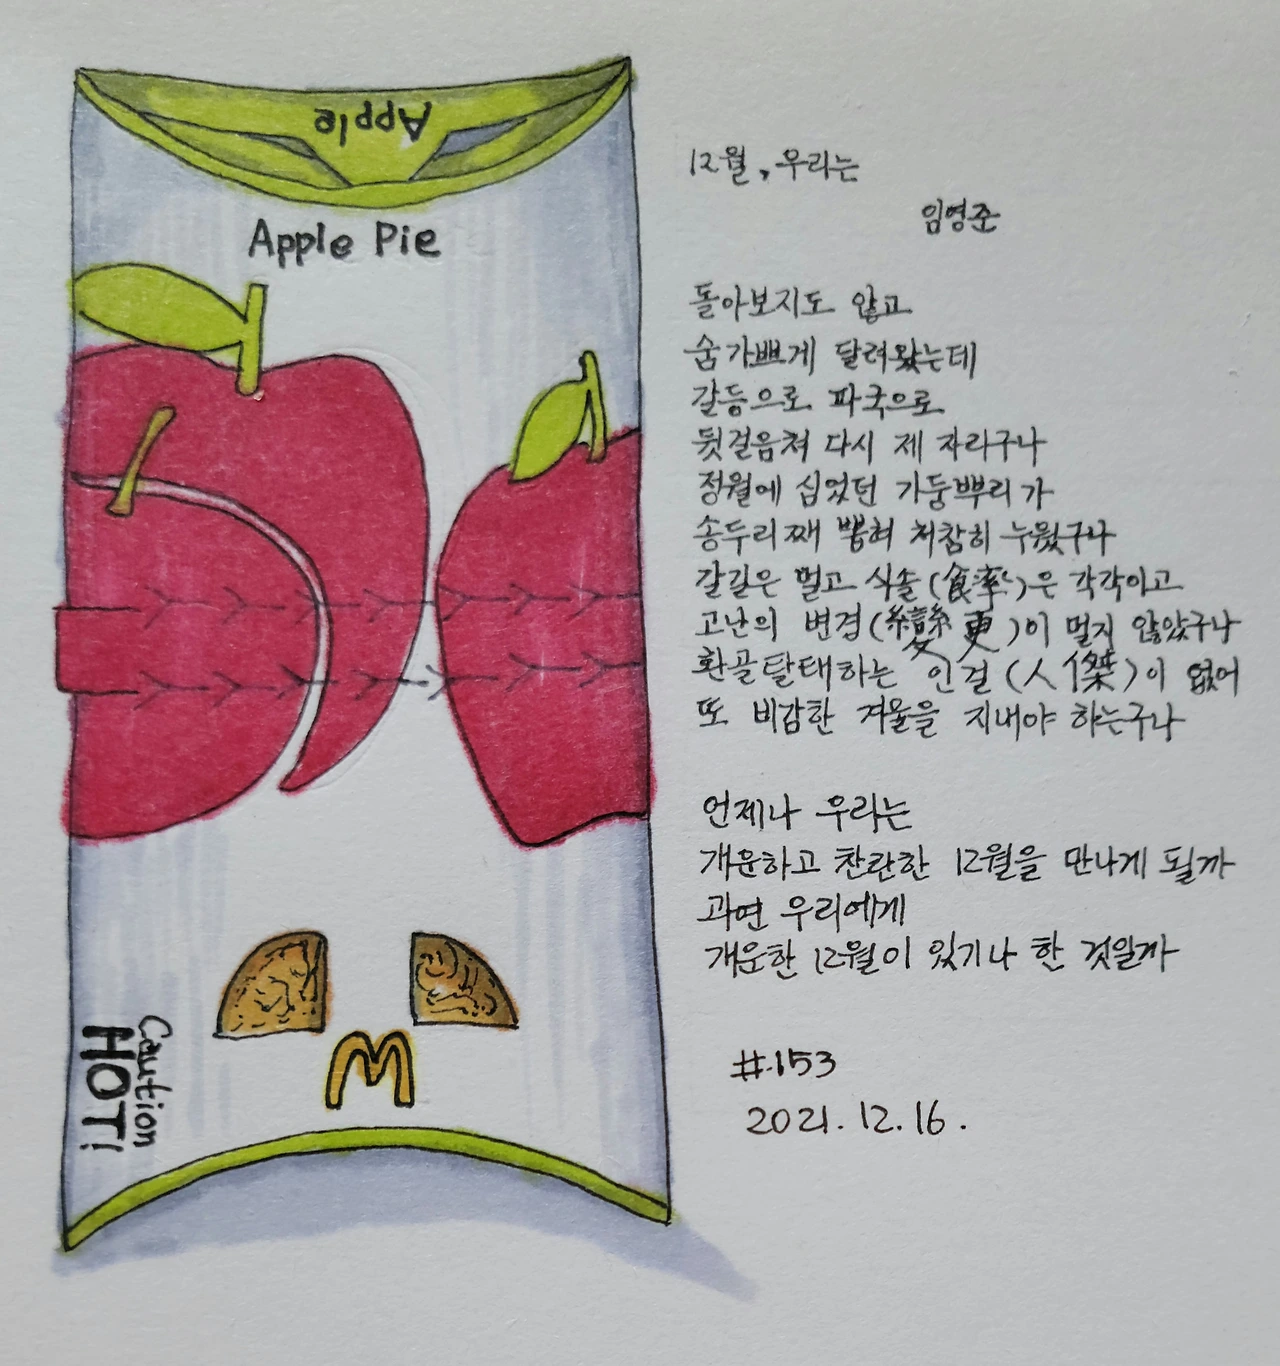 Apple
Apple Pie
M
Caution
HOT!
12월, 우리는
임영준
돌아보지도 않고
숨가쁘게 달려왔는데
갈등으로 파국으로
뒷걸음쳐 다시 제 자리구나
정월에 심었던 가둥뿌리가
송두리째 뽑혀 처참히 누웠구나
갈길은 멀고 식솔(食率)은 각각이고
고난의 변경(變更)이 멀지 않았구나
환골탈태하는 인걸(人傑)이 없어
또 비감한 겨울을 지내야 하는구나
언제나 우리는
개운하고 찬란한 12월을 만나게 될까
과연 우리에게
개운한 12월이 있기나 한 것일까
#.153
2021.12.16.